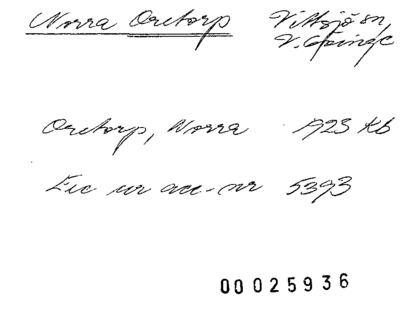 Norra Oretorp Vittsjö sn,
V. Göinge
Oretorp, Norra 1923 Kb
Exc ur acc-nr 5393
00025936